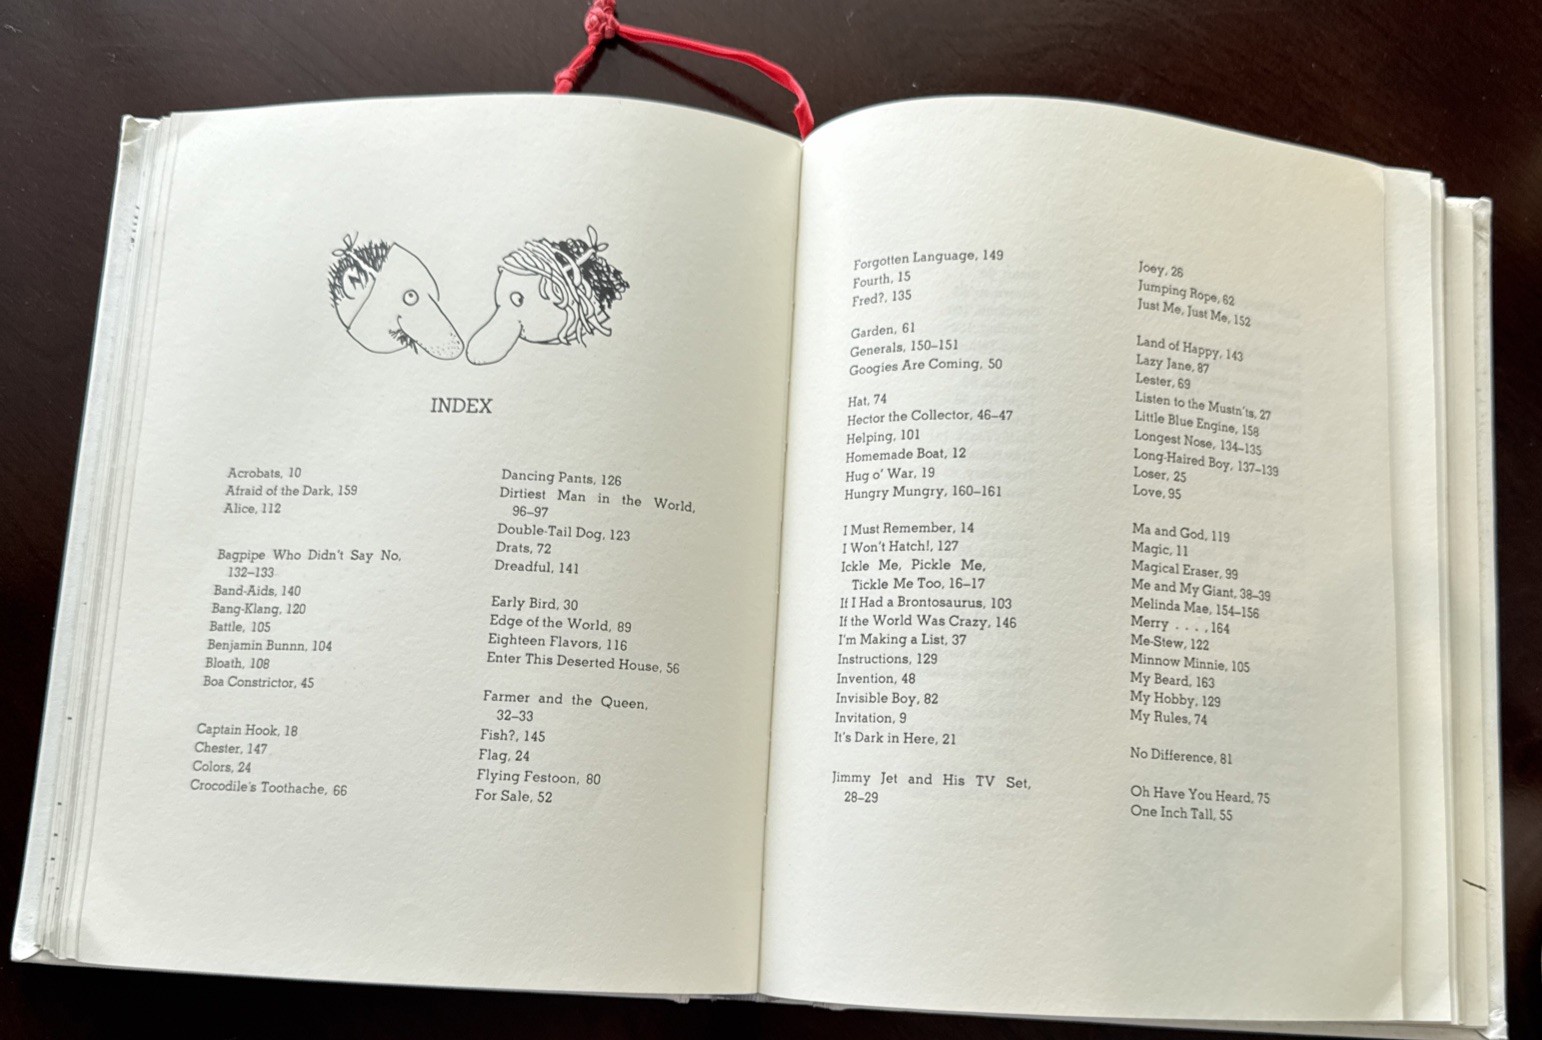 INDEX
Acrobats, 10
Afraid of the Dark, 159
Alice, 112
Bagpipe Who Didn't Say No,
132–133
Band-Aids, 140
Bang-Klang, 120
Battle, 105
Benjamin Bunnn, 104
Bloath, 108
Boa Constrictor, 45
Captain Hook, 18
Chester, 147
Colors, 24
Crocodile's Toothache, 66
Dancing Pants, 126
Dirtiest Man in the World,
96–97
Double-Tail Dog, 123
Drats, 72
Dreadful, 141
Early Bird, 30
Edge of the World, 89
Eighteen Flavors, 116
Enter This Deserted House, 56
Farmer and the Queen,
32–33
Fish?, 145
Flag, 24
Flying Festoon, 80
For Sale, 52
Forgotten Language, 149
Fourth, 15
Fred?, 135
Garden, 61
Generals, 150–151
Googies Are Coming, 50
Hat, 74
Hector the Collector, 46–47
Helping, 101
Homemade Boat, 12
Hug o' War, 19
Hungry Mungry, 160–161
I Must Remember, 14
I Won't Hatch!, 127
Ickle Me, Pickle Me,
Tickle Me Too, 16–17
If I Had a Brontosaurus, 103
If the World Was Crazy, 146
I'm Making a List, 37
Instructions, 129
Invention, 48
Invisible Boy, 82
Invitation, 9
It's Dark in Here, 21
Jimmy Jet and His TV Set,
28–29
Joey, 26
Jumping Rope, 62
Just Me, Just Me, 152
Land of Happy, 143
Lazy Jane, 87
Lester, 69
Listen to the Mustn'ts, 27
Little Blue Engine, 158
Longest Nose, 134–135
Long-Haired Boy, 137–139
Loser, 25
Love, 95
Ma and God, 119
Magic, 11
Magical Eraser, 99
Me and My Giant, 38–39
Melinda Mae, 154–156
Merry . . . , 164
Me-Stew, 122
Minnow Minnie, 105
My Beard, 163
My Hobby, 129
My Rules, 74
No Difference, 81
Oh Have You Heard, 75
One Inch Tall, 55